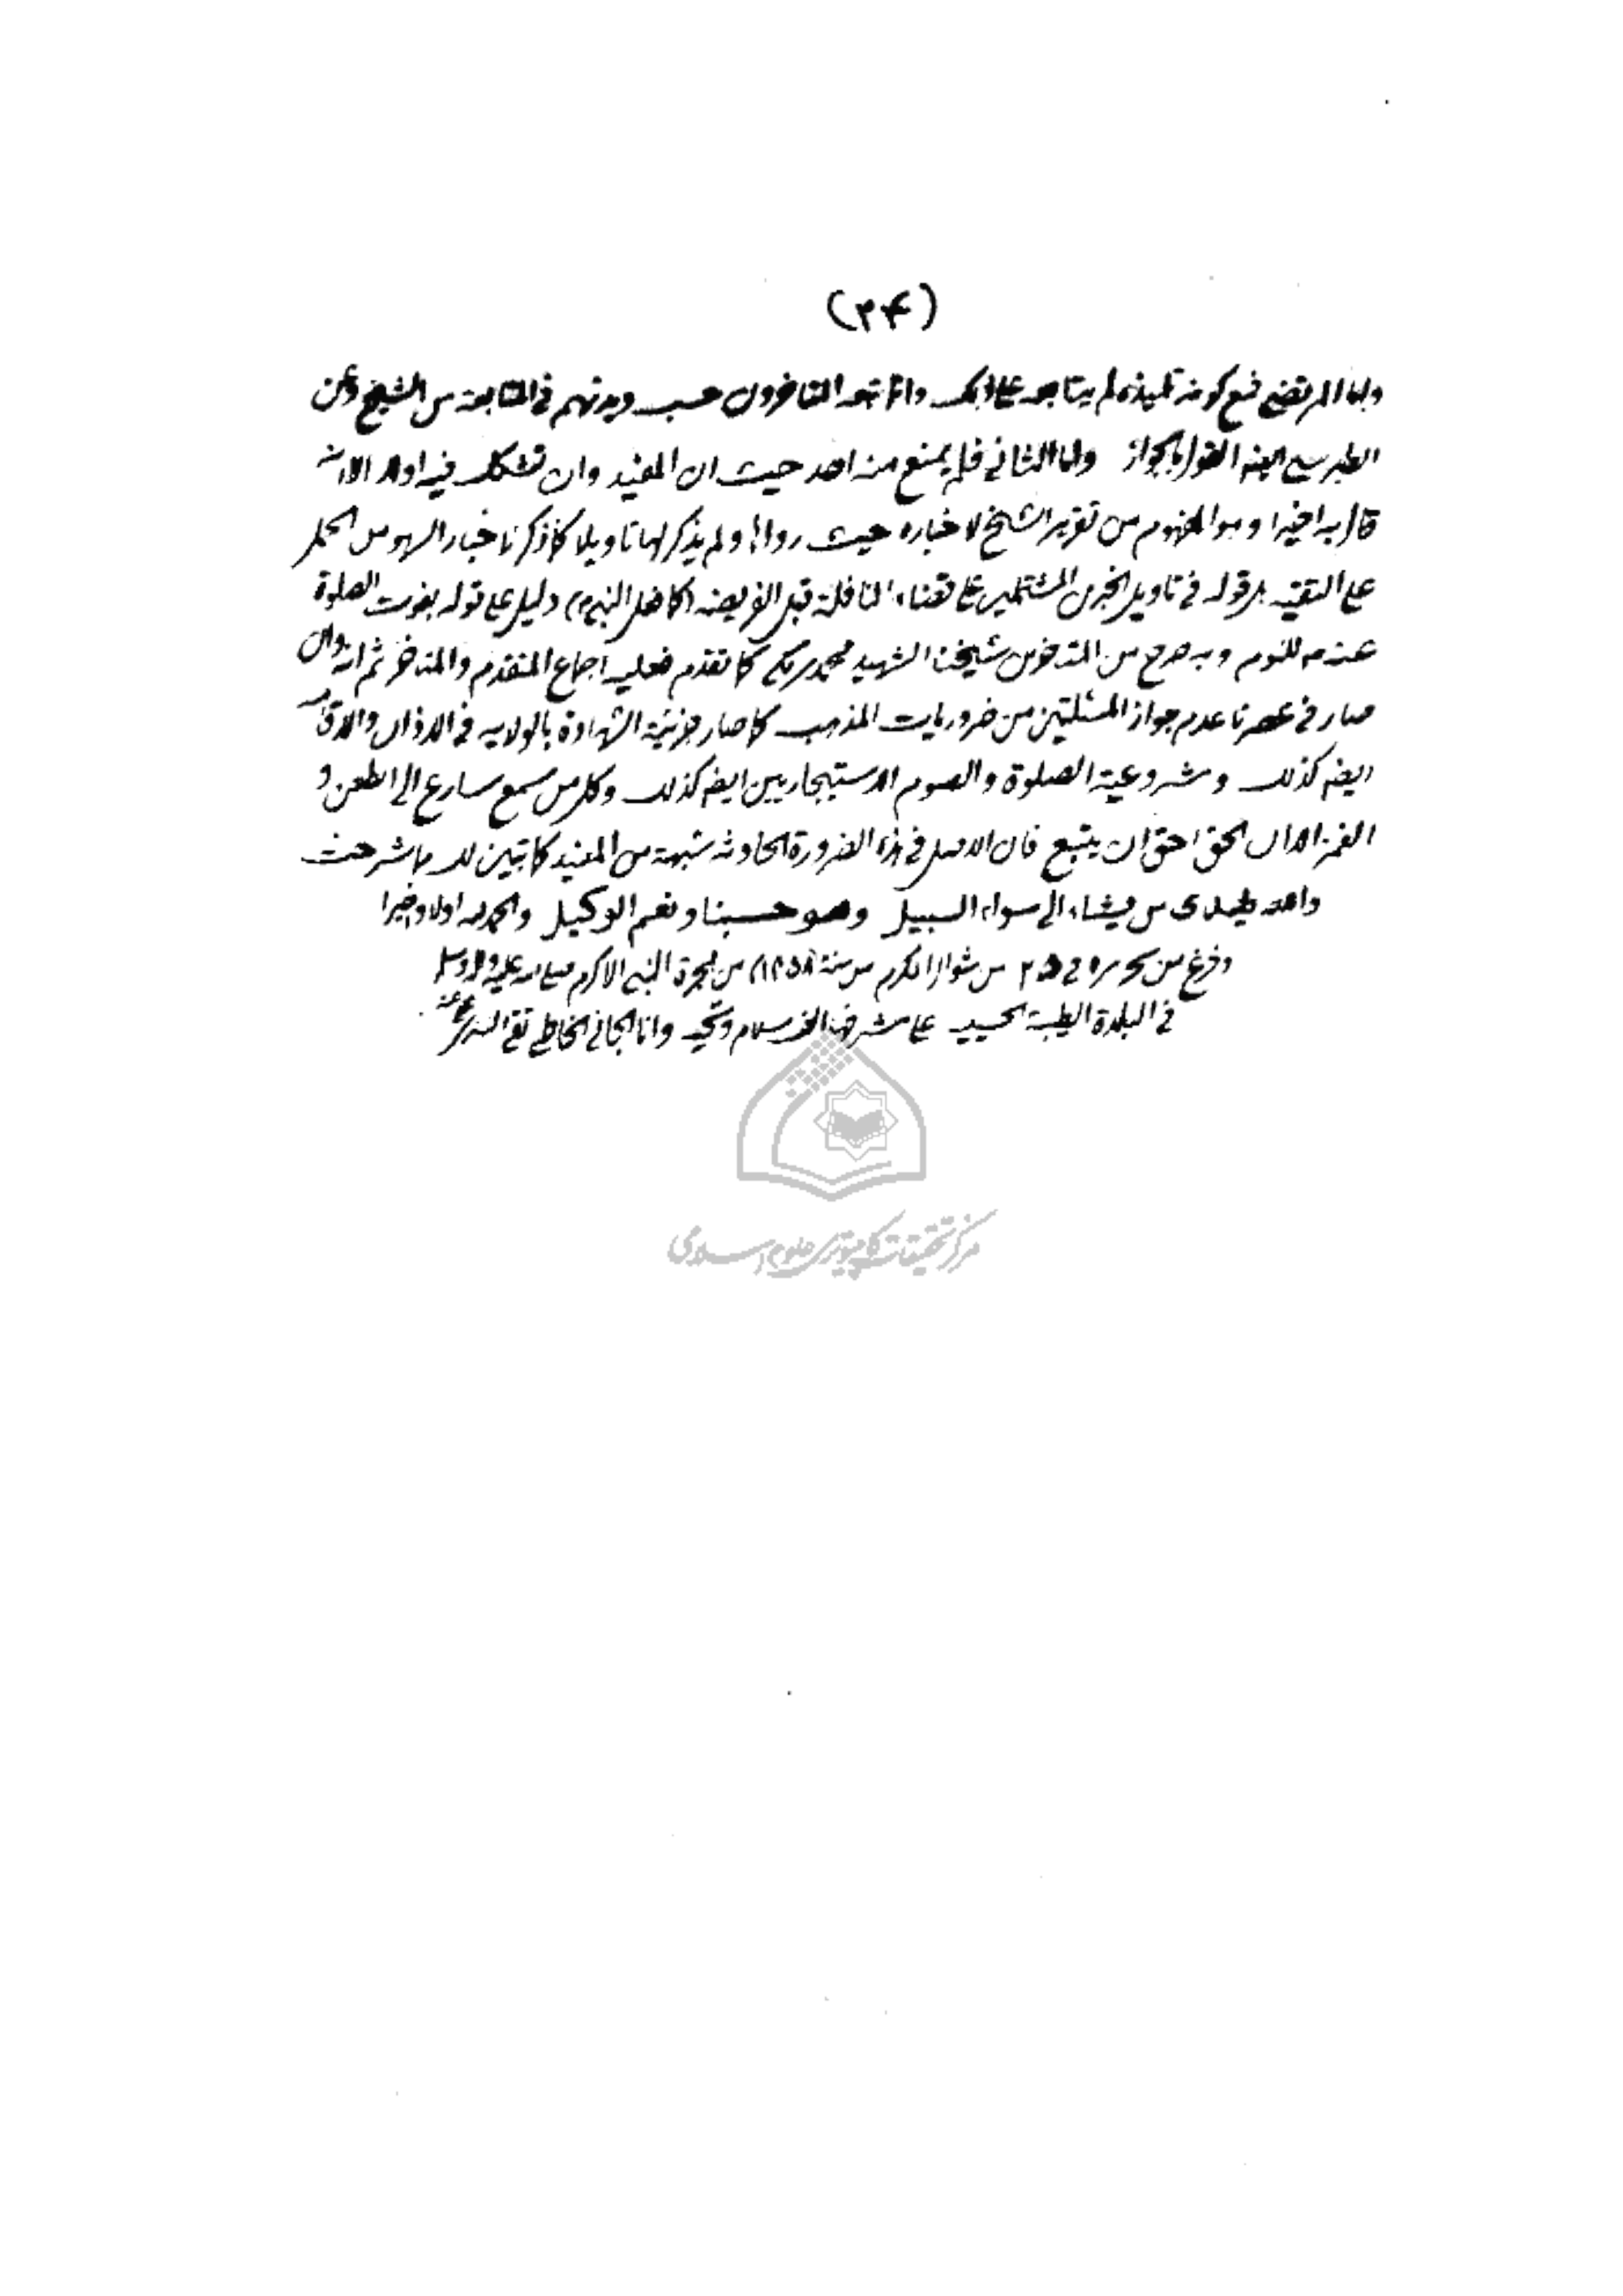 (۲۴)
واما المرتضى فمع كونه تلميذه لم يتابعه على ذلك وانما تبعه المتأخرون حسب ديدنهم في المتابعة من الشيخ وعن
الطبرسي ايضه القول بالجواز واما الثاني فلم يمنع منه احد حيث ان المفيد وان تشكك فيه اولا الا انه
قال به اخيرا وهو المفهوم من تقرير الشيخ لاخباره حيث رواها ولم يذكر لها تاويلا كما ذكرنا خبار السهو من الحمل
على التقية بل قوله في تاويل الخبرين المشتملين على قضاء النافلة قبل الفريضه (كما فعل النبي ص) دليل على قوله بفوت الصلوة
عنه ص للنوم وبه صرح من المتاخرين شيخنا الشهيد محمد بن مكي كما تقدم فعليه اجماع المتقدم والمتاخر ثم انه وان
صار في عصرنا عدم جواز المسئلتين من ضروريات المذهب كما صار جزئية الشهادة بالولايه في الاذان والاقامه
ايضه كذلك ومشروعية الصلوة والصوم الاستيجاريين ايضه كذلك وكل من سمع سارع الى الطعن و
الغمز الا ان الحق احق ان يتبع فان الاصل في هذه الضرورة الحادثه شبهة من المفيد كما تبين لك بما شرحت
والله يهدى من يشاء الى سواء السبيل وهو حسبنا ونعم الوكيل والحمد لله اولا واخيرا
وفرغ من تحريره في ٢٥ من شوال المكرم من سنة ١٣٥٨ من هجرة النبي الاكرم صلى الله عليه واله وسلم
في البلدة الطيبة على مشرفها الف سلام وتحيه وانا الجاني الخاطي تقي التستري عفى عنه
مركز تحقيقات كامپيوترى علوم اسلامى